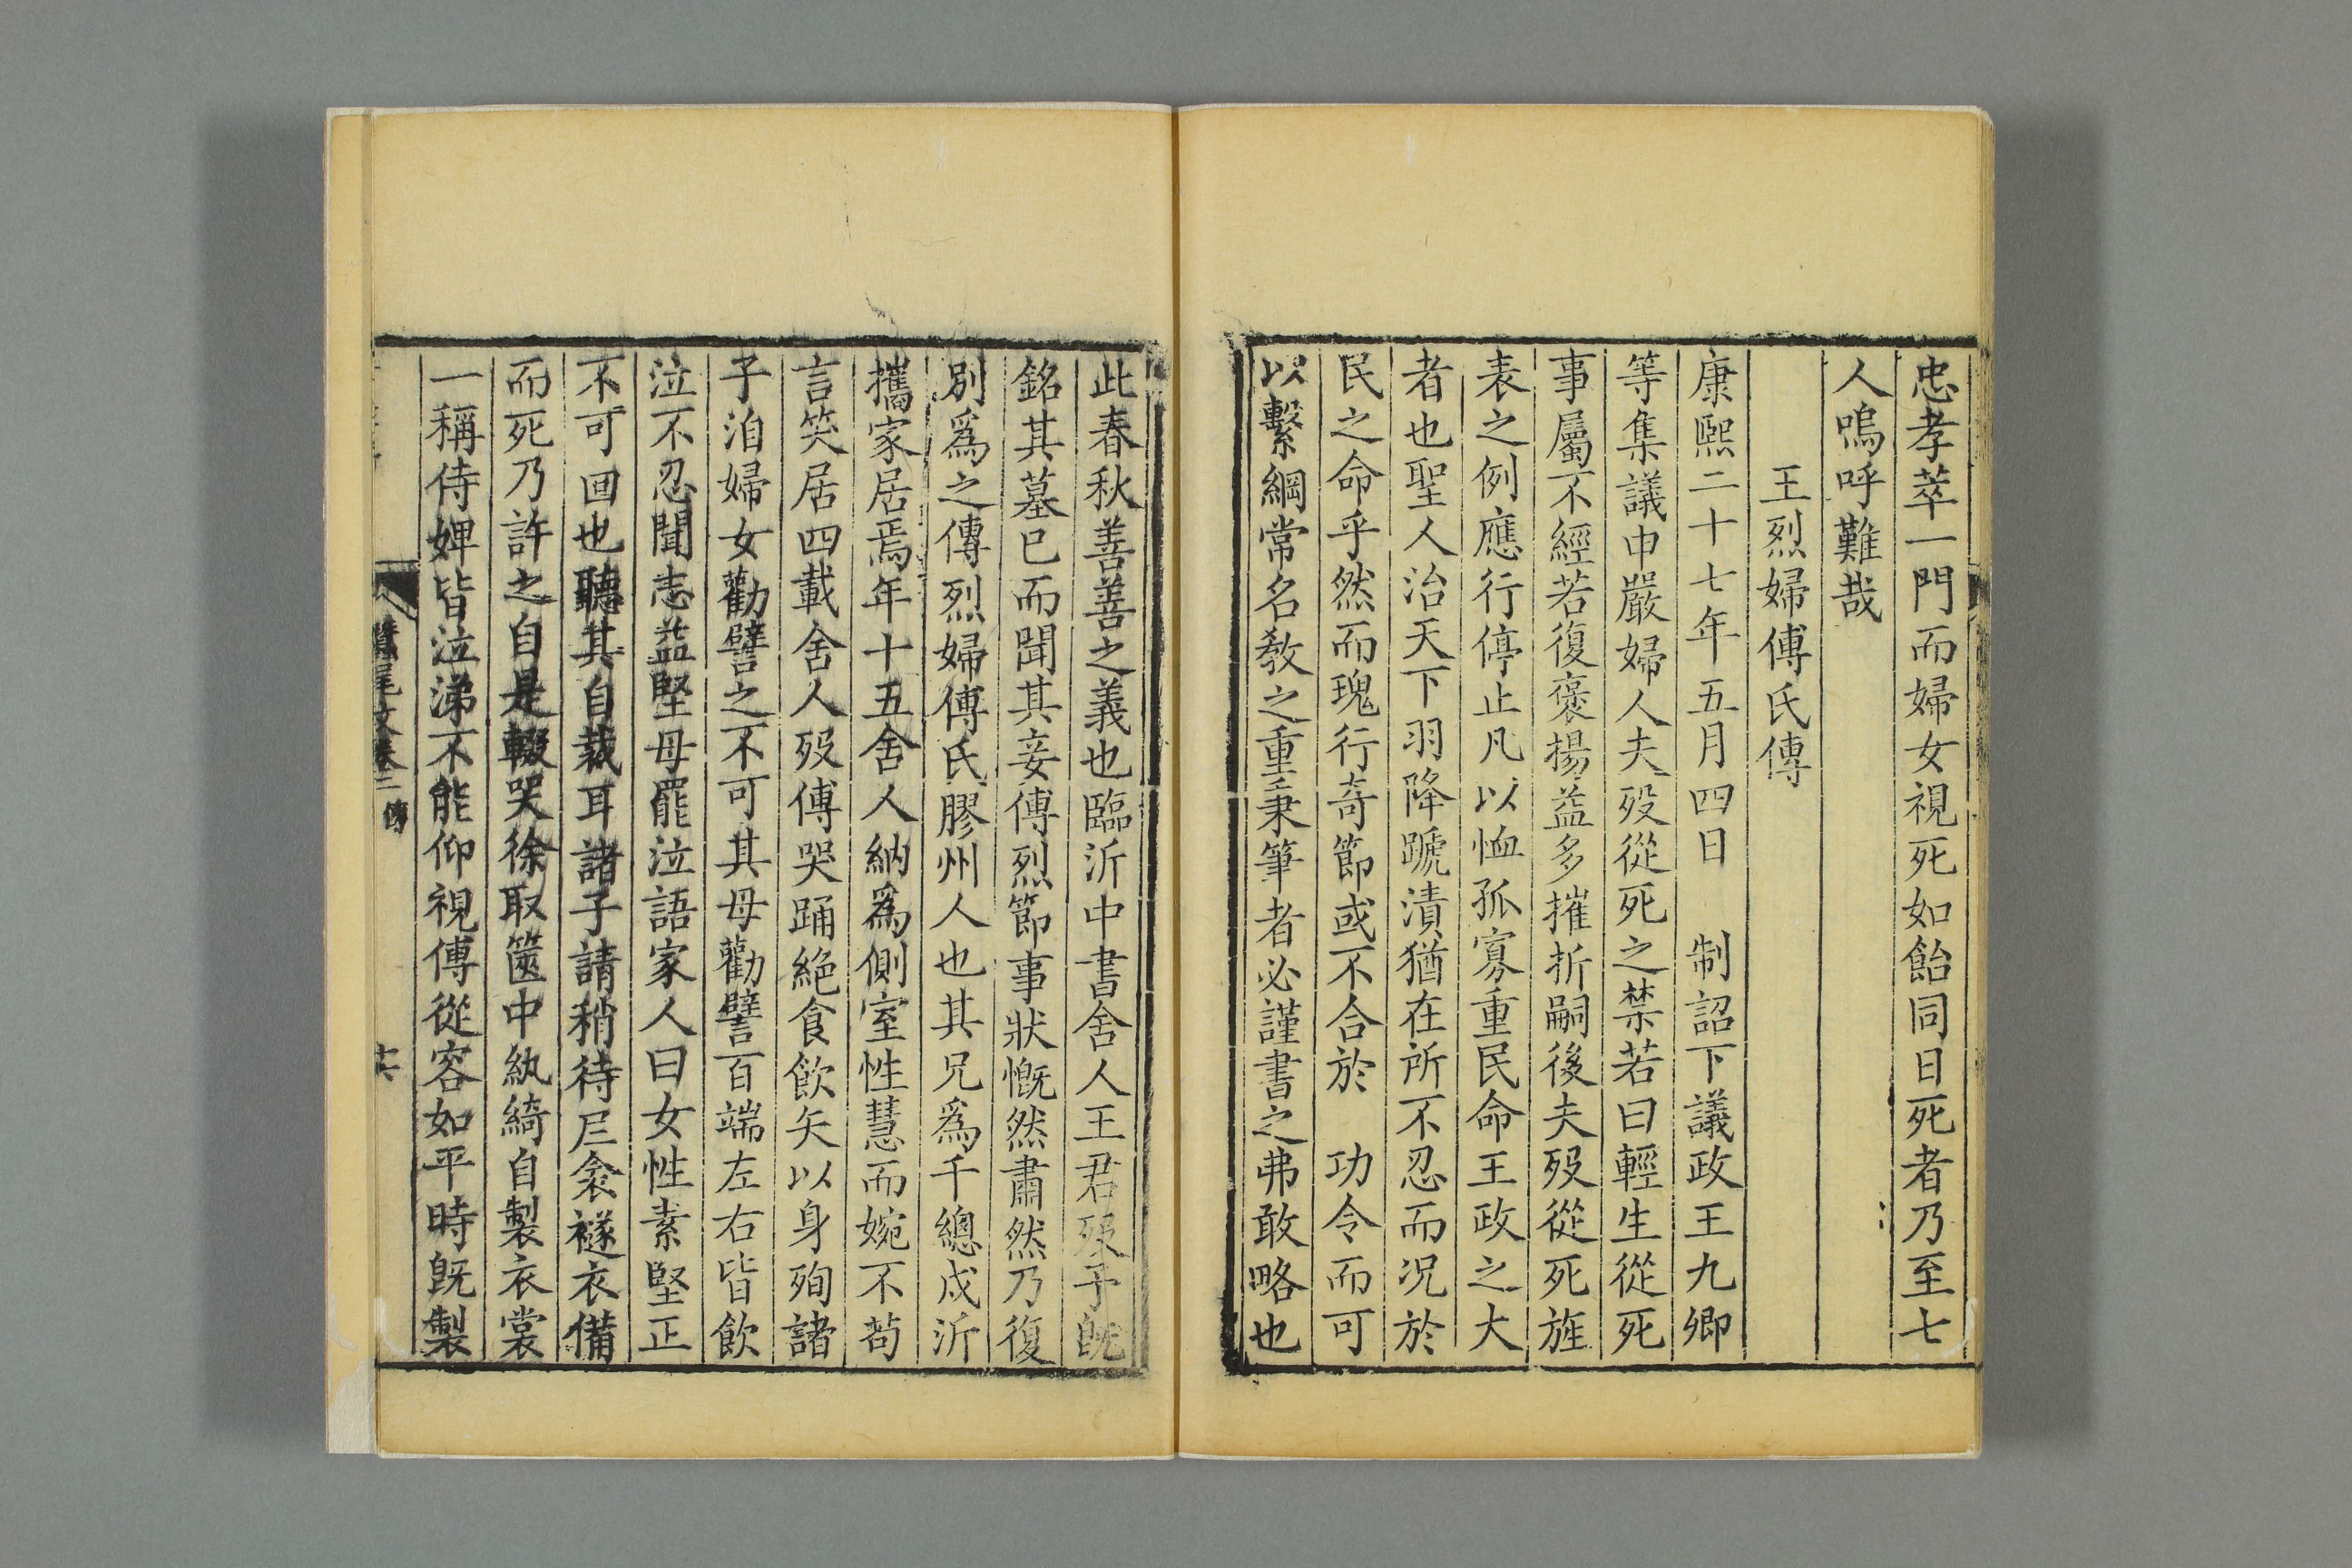 忠孝萃一門而婦女視死如飴同日死者乃至七
人嗚呼難哉
王烈婦傅氏傳
康熙二十七年五月四日　制詔下議政王九卿
等集議申嚴婦人夫歿從死之禁若曰輕生從死
事屬不經若復褒揚益多摧折嗣後夫歿從死旌
表之例應行停止凡以恤孤寡重民命王政之大
者也聖人治天下羽降蹏漬猶在所不忍而况於
民之命乎然而瑰行奇節或不合於　功令而可
以繫綱常名教之重秉筆者必謹書之弗敢略也
此春秋善善之義也臨沂中書舍人王君歿予既
銘其墓已而聞其妾傅烈節事狀慨然肅然乃復
別爲之傳烈婦傅氏膠州人也其兄爲千總戍沂
攜家居焉年十五舍人納爲側室性慧而婉不苟
言笑居四載舍人歿傅哭踊絕食飲矢以身殉諸
子洎婦女勸譬之不可其母勸譬百端左右皆飲
泣不忍聞志益堅母罷泣語家人曰女性素堅正
不可回也聽其自裁耳諸子請稍待巵衾襚衣備
而死乃許之自是輟哭徐取篋中紈綺自製衣裳
一稱侍婢皆泣涕不能仰視傅從容如平時既製
蠶尾文卷二 傳